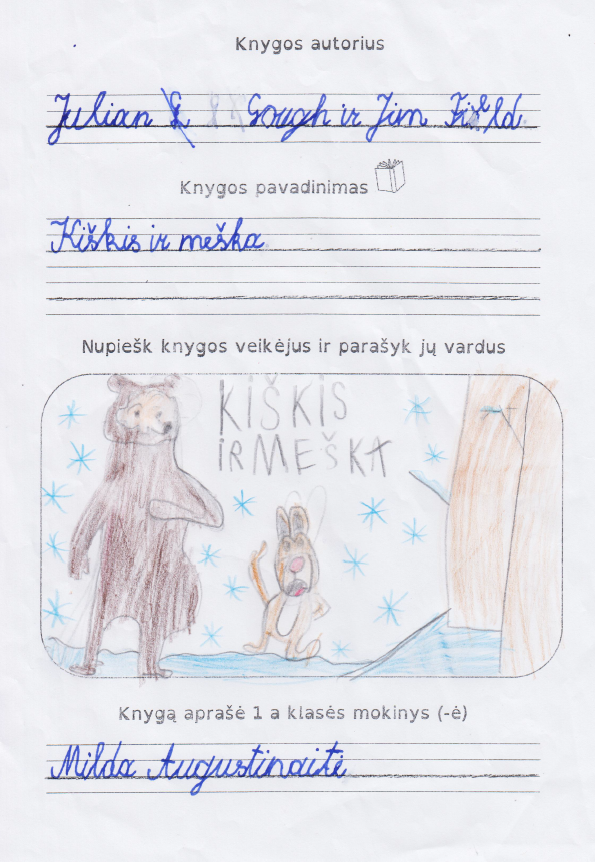 Knygos autorius
Julian Gough ir Jim Field
Knygos pavadinimas
Kiškis ir meška
Nupiešk knygos veikėjus ir parašyk jų vardus
KIŠKIS
IR MEŠKA
Knygą aprašė 1 a klasės mokinys (-ė)
Milda Augustinaitė